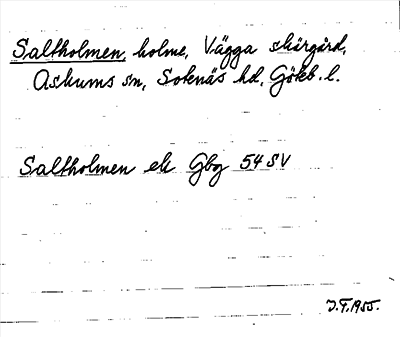 Saltholmen, holme, Vägga skärgård,
Askums sn, Sotenäs hd, Göteb. l.
Saltholmen ek Gbg 54 SV
J.F. 1955.